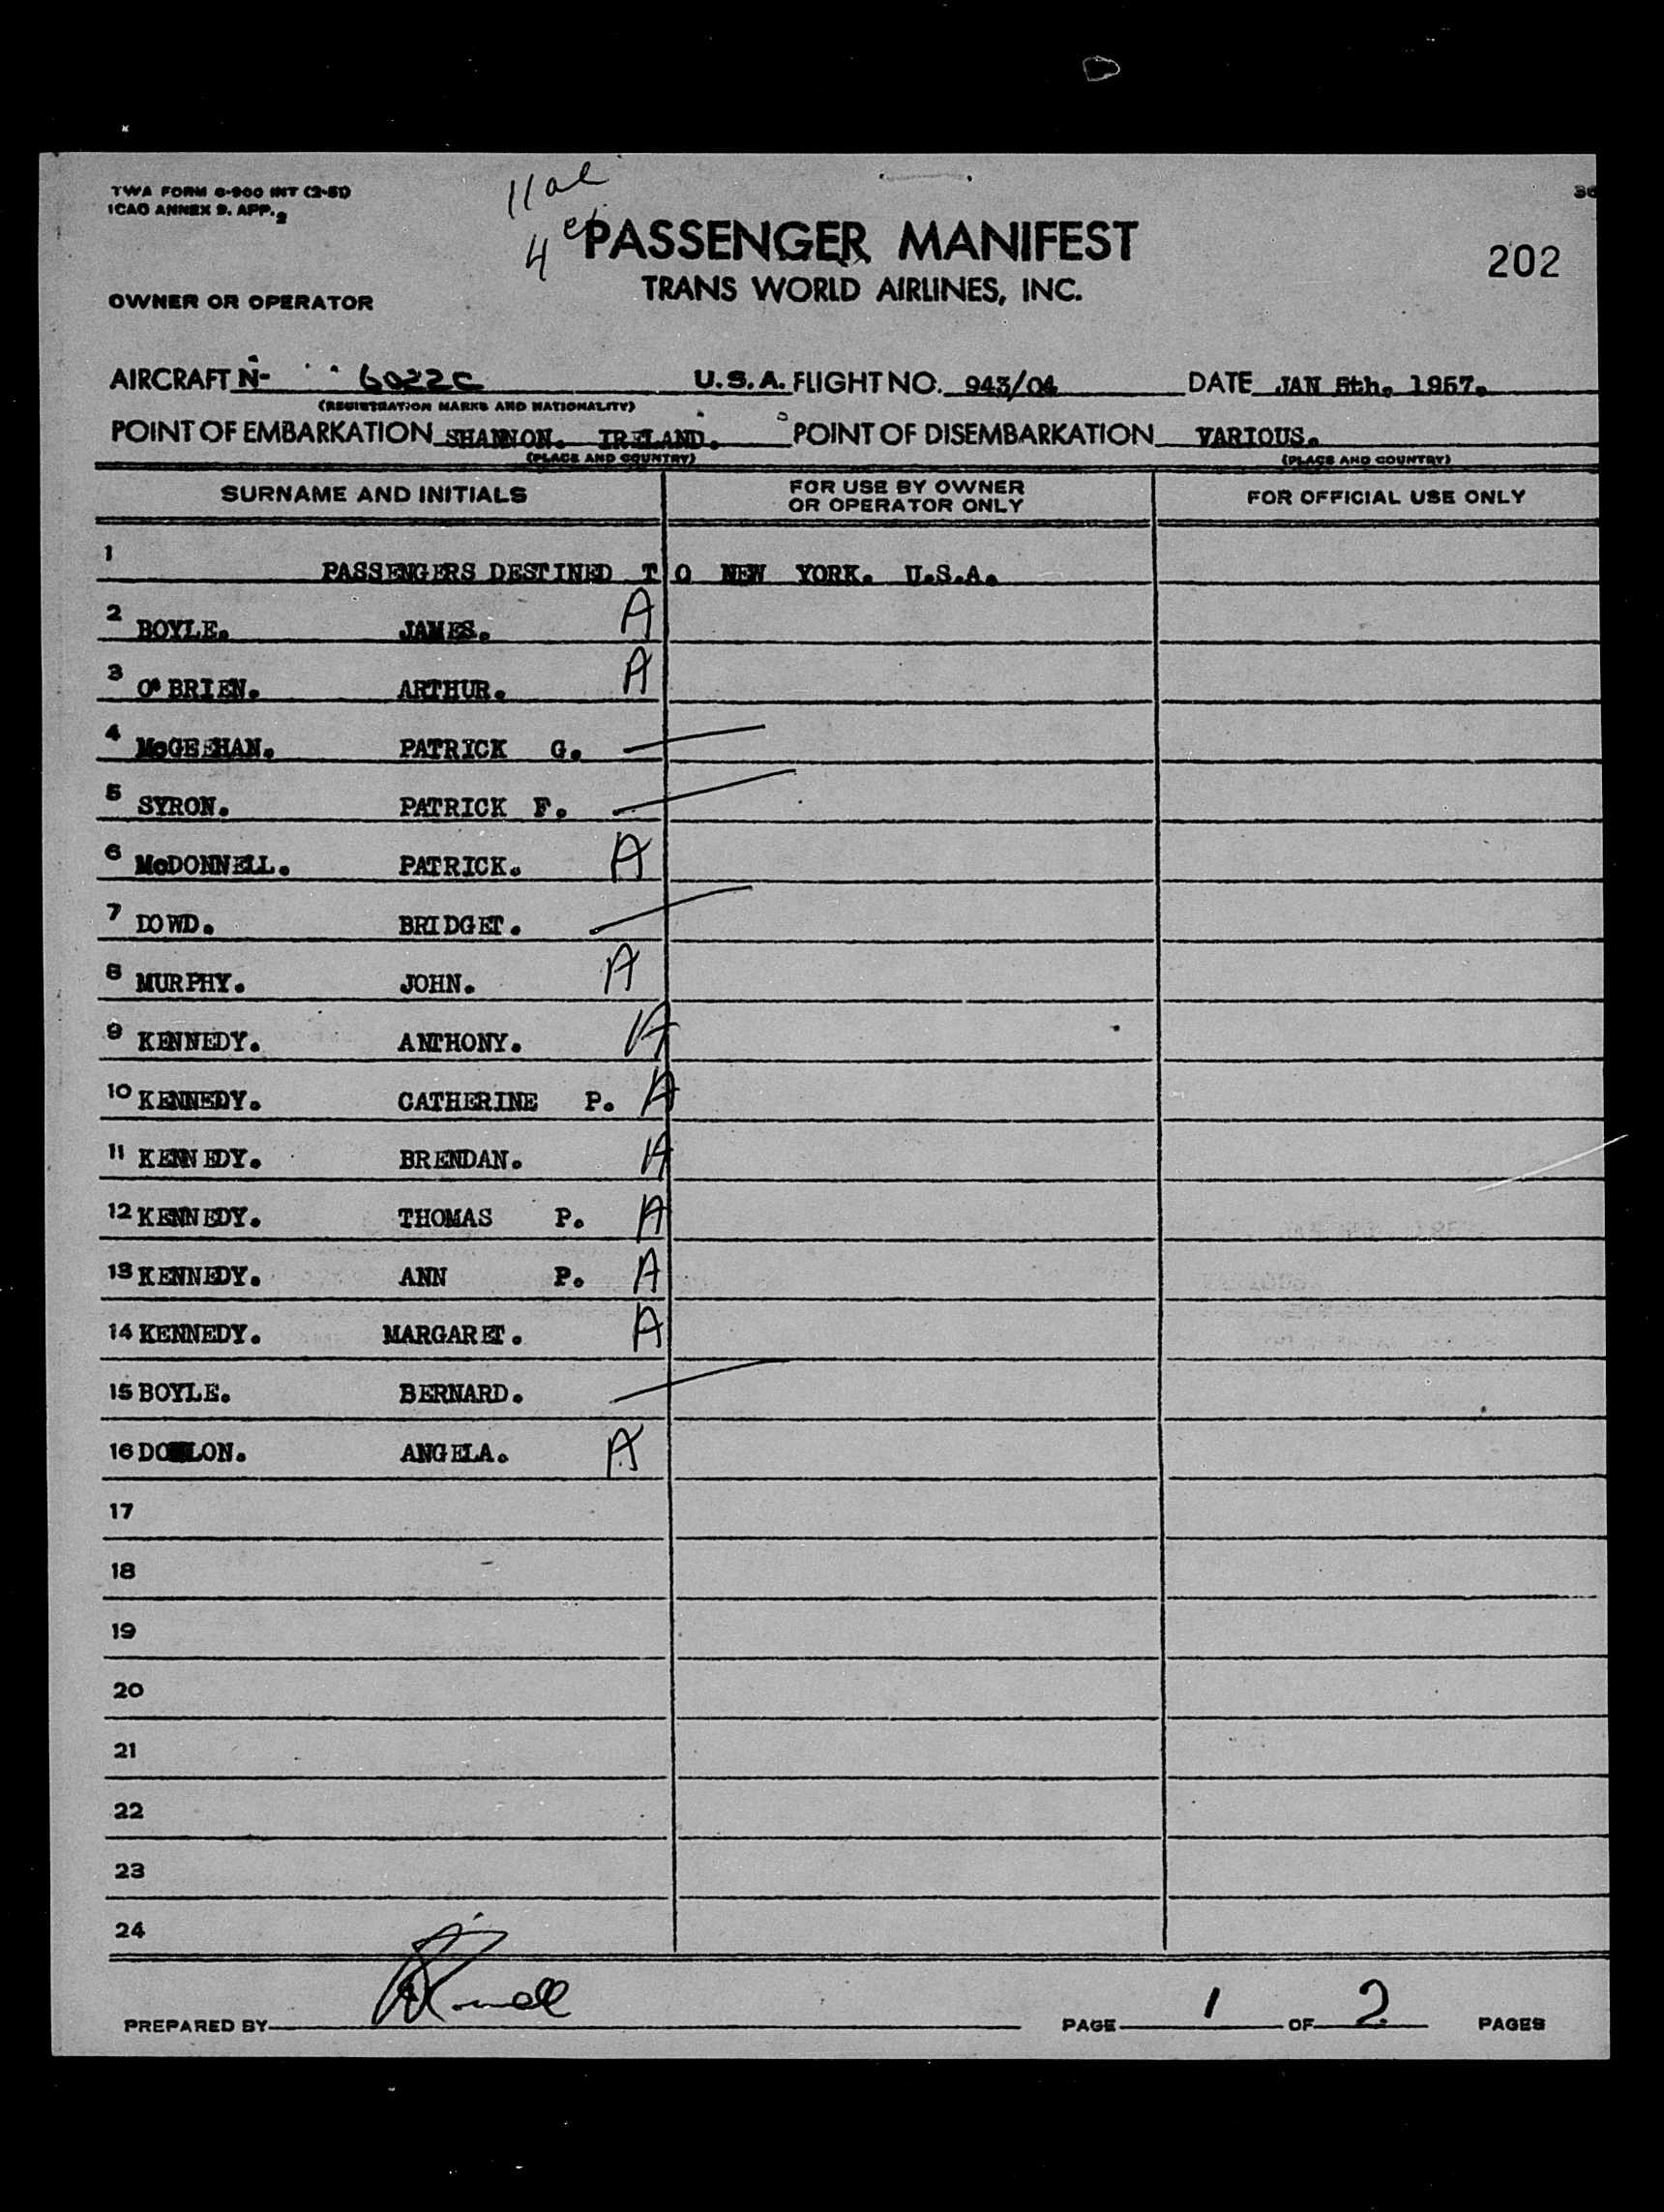 TWA FORM 0-900 INT (2-51)
ICAO ANNEX 9. APP. 2
11 al
4
PASSENGER MANIFEST
202
TRANS WORLD AIRLINES, INC.
OWNER OR OPERATOR
AIRCRAFT N- 6022C U.S.A. FLIGHT NO. 943/04 DATE JAN 5th. 1957.
(REGISTRATION MARKS AND NATIONALITY)
POINT OF EMBARKATION SHANNON. IRELAND. POINT OF DISEMBARKATION VARIOUS.
(PLACE AND COUNTRY) (PLACE AND COUNTRY)
SURNAME AND INITIALS FOR USE BY OWNER OR OPERATOR ONLY FOR OFFICIAL USE ONLY
1 PASSENGERS DESTINED T O NEW YORK. U.S.A.
2 BOYLE. JAMES. A
3 O'BRIEN. ARTHUR. A
4 McGEEHAN. PATRICK G.
5 SYRON. PATRICK F.
6 McDONNELL. PATRICK. A
7 DOWD. BRIDGET.
8 MURPHY. JOHN. A
9 KENNEDY. ANTHONY. A
10 KENNEDY. CATHERINE P. A
11 KENNEDY. BRENDAN. A
12 KENNEDY. THOMAS P. A
13 KENNEDY. ANN P. A
14 KENNEDY. MARGARET. A
15 BOYLE. BERNARD.
16 ANGELA. A
17
18
19
20
21
22
23
24
PREPARED BY PAGE 1 OF 2 PAGES